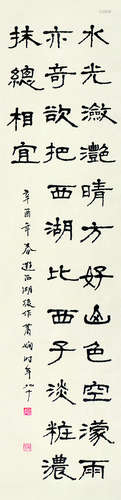 水光瀲灧晴方好山色空濛雨
亦奇欲把西湖比西子淡粧濃
抹總相宜
辛酉年春遊西湖後作蕭嫻時年八十